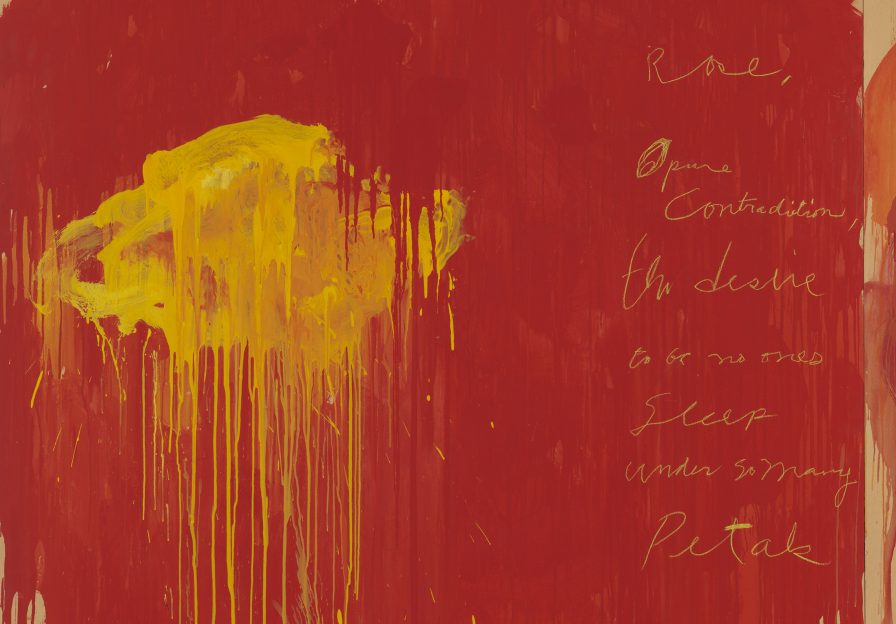 Rose,
O pure
Contradiction,
the desire
to be no ones
Sleep
under so many
Petals